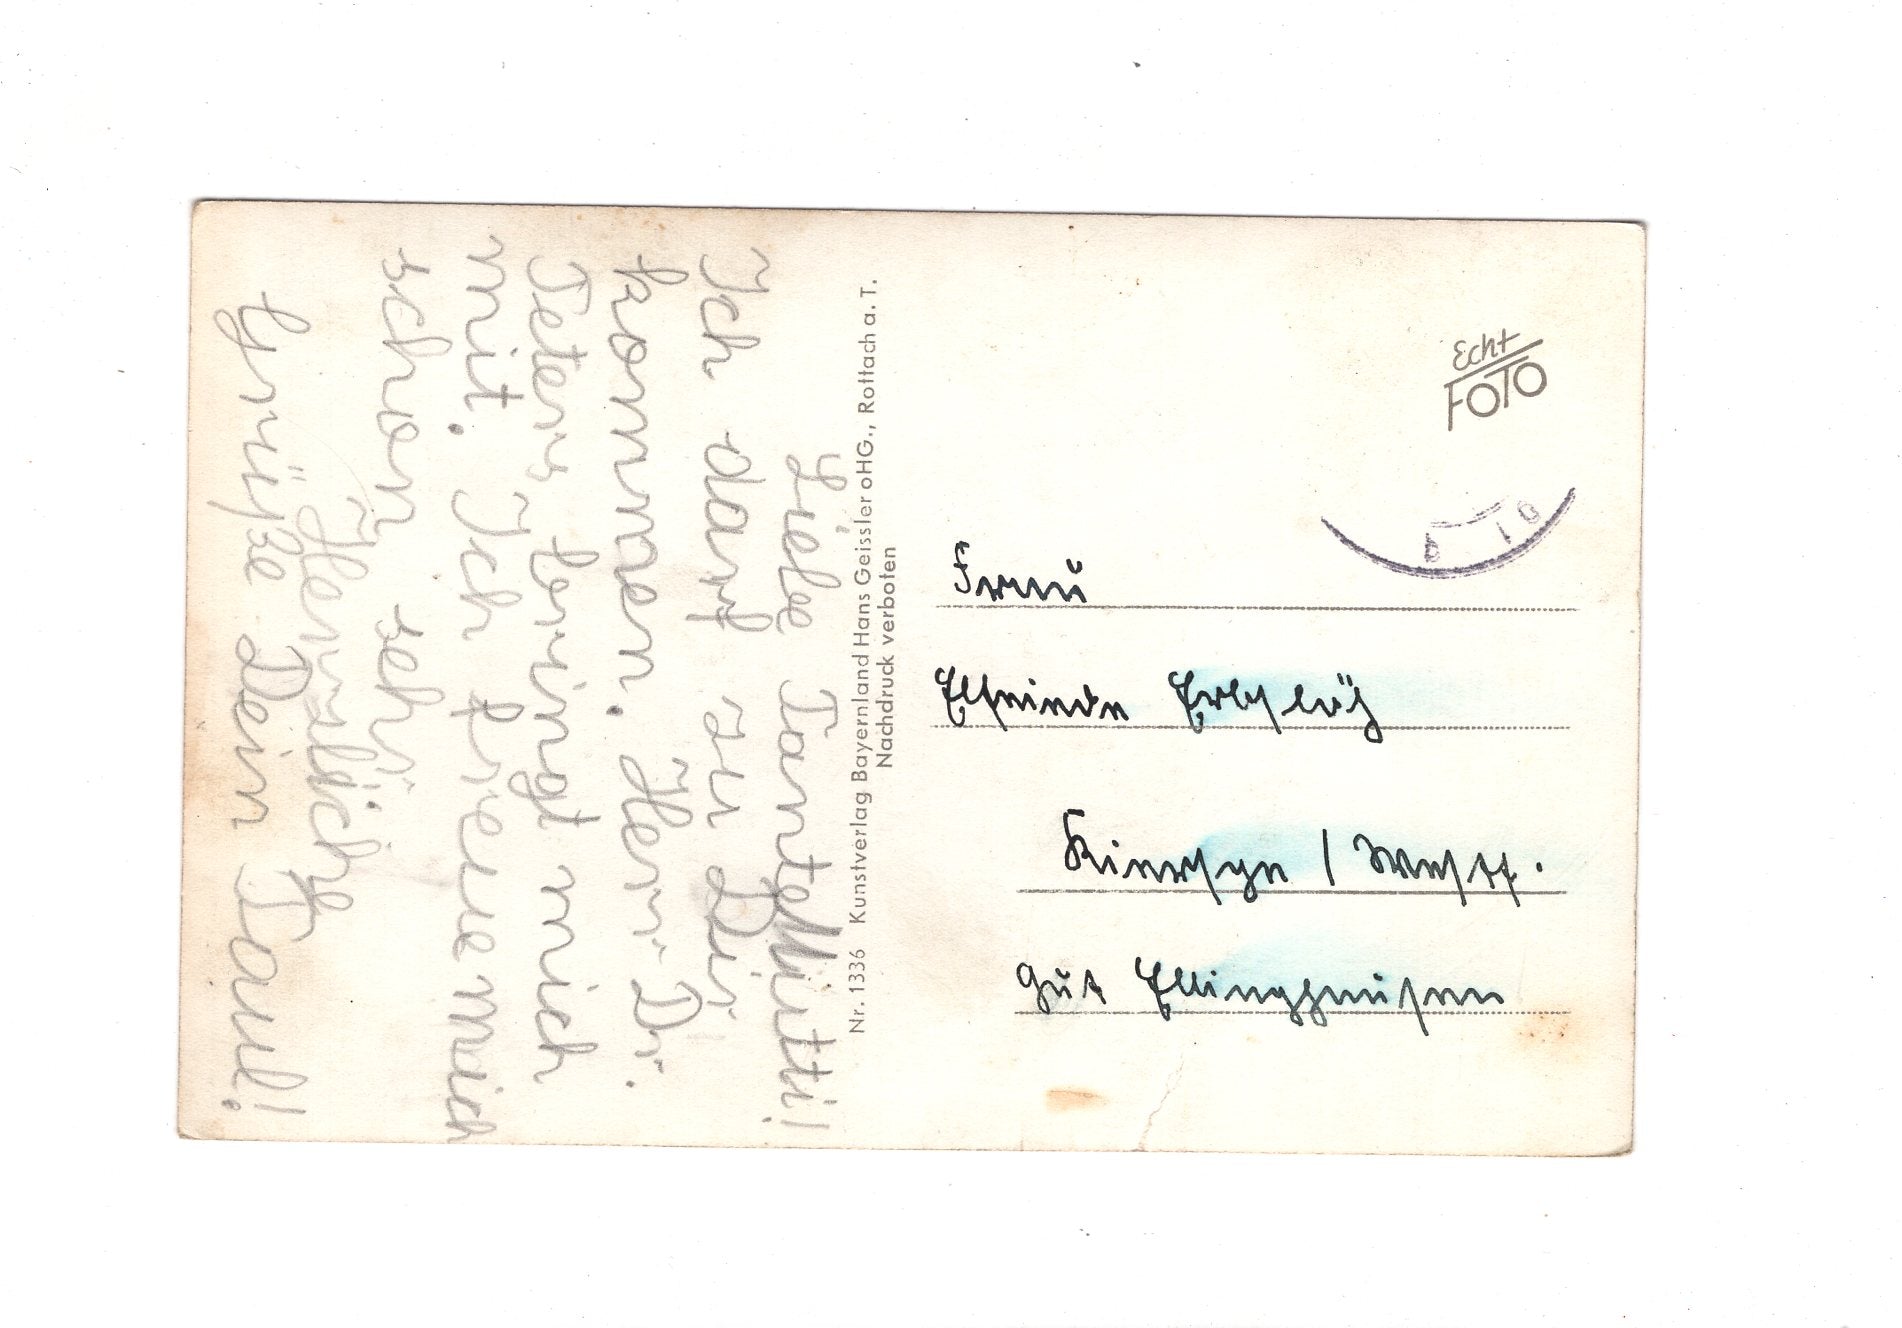 Liebe Tante Mutti!
Ich darf zu Dir
kommen. Herr Dr.
Peters bringt mich
mit. Ich freue mich
schon sehr.
Herzliche
Grüße Dein Paul!
Nr. 1336 Kunstverlag Bayernland Hans Geissler oHG., Rottach a. T.
Nachdruck verboten
Echt
FOTO
Frau
Elfriede Erbslöh
Kierspe / Westf.
Gut Ellinghausen